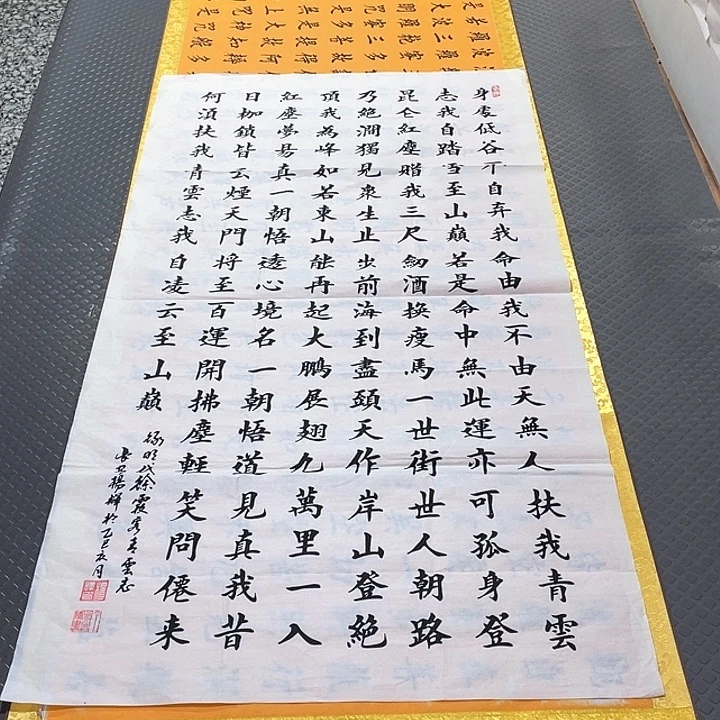 身處低谷不自弃我命由我不由天無人扶我青雲
志我自踏雪至山巔若是命中無此運亦可孤身登
昆仑紅塵赠我三尺釼酒換瘦馬一世街世人朝路
乃絕澗獨見衆生止步前海到盡頭天作岸山登絕
頂我為峰如若東山能再起大鵬展翅九萬里一入
紅塵夢易真一朝悟透心境名一朝悟道見真我昔
日枷鎖皆云煙天門將至百運開拂塵輕笑問僊來
何須扶我青雲志我自凌云至山巔
録明代徐霞客青雲志
楊輝於乙巳夏月